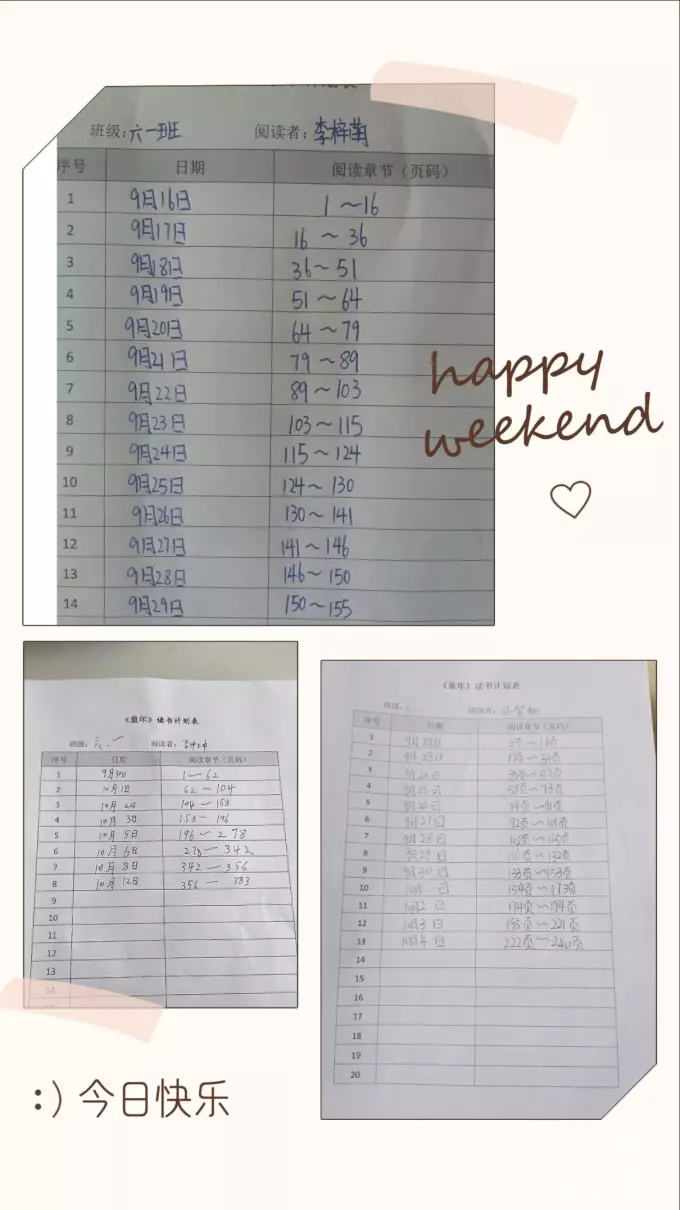 班级:六一班 阅读者:李梓萌
序号 日期 阅读章节（页码）
1 9月16日 1～16
2 9月17日 16～36
3 9月18日 36～51
4 9月19日 51～64
5 9月20日 64～79
6 9月21日 79～89
7 9月22日 89～103
8 9月23日 103～115
9 9月24日 115～124
10 9月25日 124～130
11 9月26日 130～141
12 9月27日 141～146
13 9月28日 146～150
14 9月29日 150～155
happy
weekend
《童年》读书计划表
班级: 六.一 阅读者:
序号 日期 阅读章节（页码）
1 9月30日 1—62
2 10月1日 62—104
3 10月2日 104—158
4 10月3日 158—196
5 10月5日 196—278
6 10月6日 278—342
7 10月8日 342—356
8 10月12日 356—383
9
10
11
12
13
14
《童年》读书计划表
班级: 阅读者:
序号 日期 阅读章节（页码）
1 9月22日
2 9月23日
3 9月24日
4 9月25日 58页～73页
5 9月26日
6 9月27日
7 9月28日
8 9月29日
9 9月30日 133页～153页
10 154页～173页
11 174页～194页
12 195页～221页
13 10月4日 222页～240页
14
15
16
17
18
19
20
:) 今日快乐